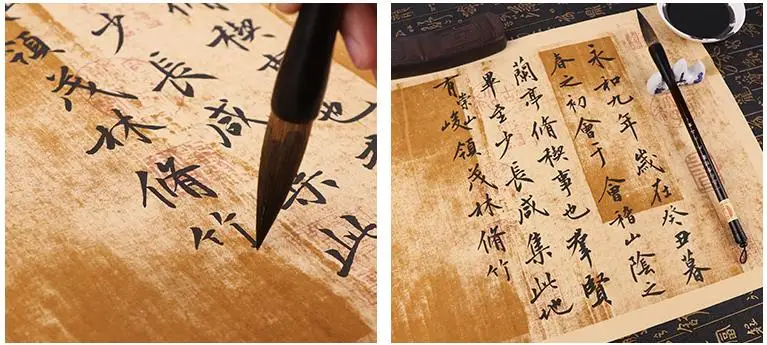 稧也
少長咸此
領茂林脩竹
永和九年歲在癸丑暮
春之初會于會稽山陰之
蘭亭脩稧事也羣賢
畢至少長咸集此地
有崇山峻領茂林脩竹